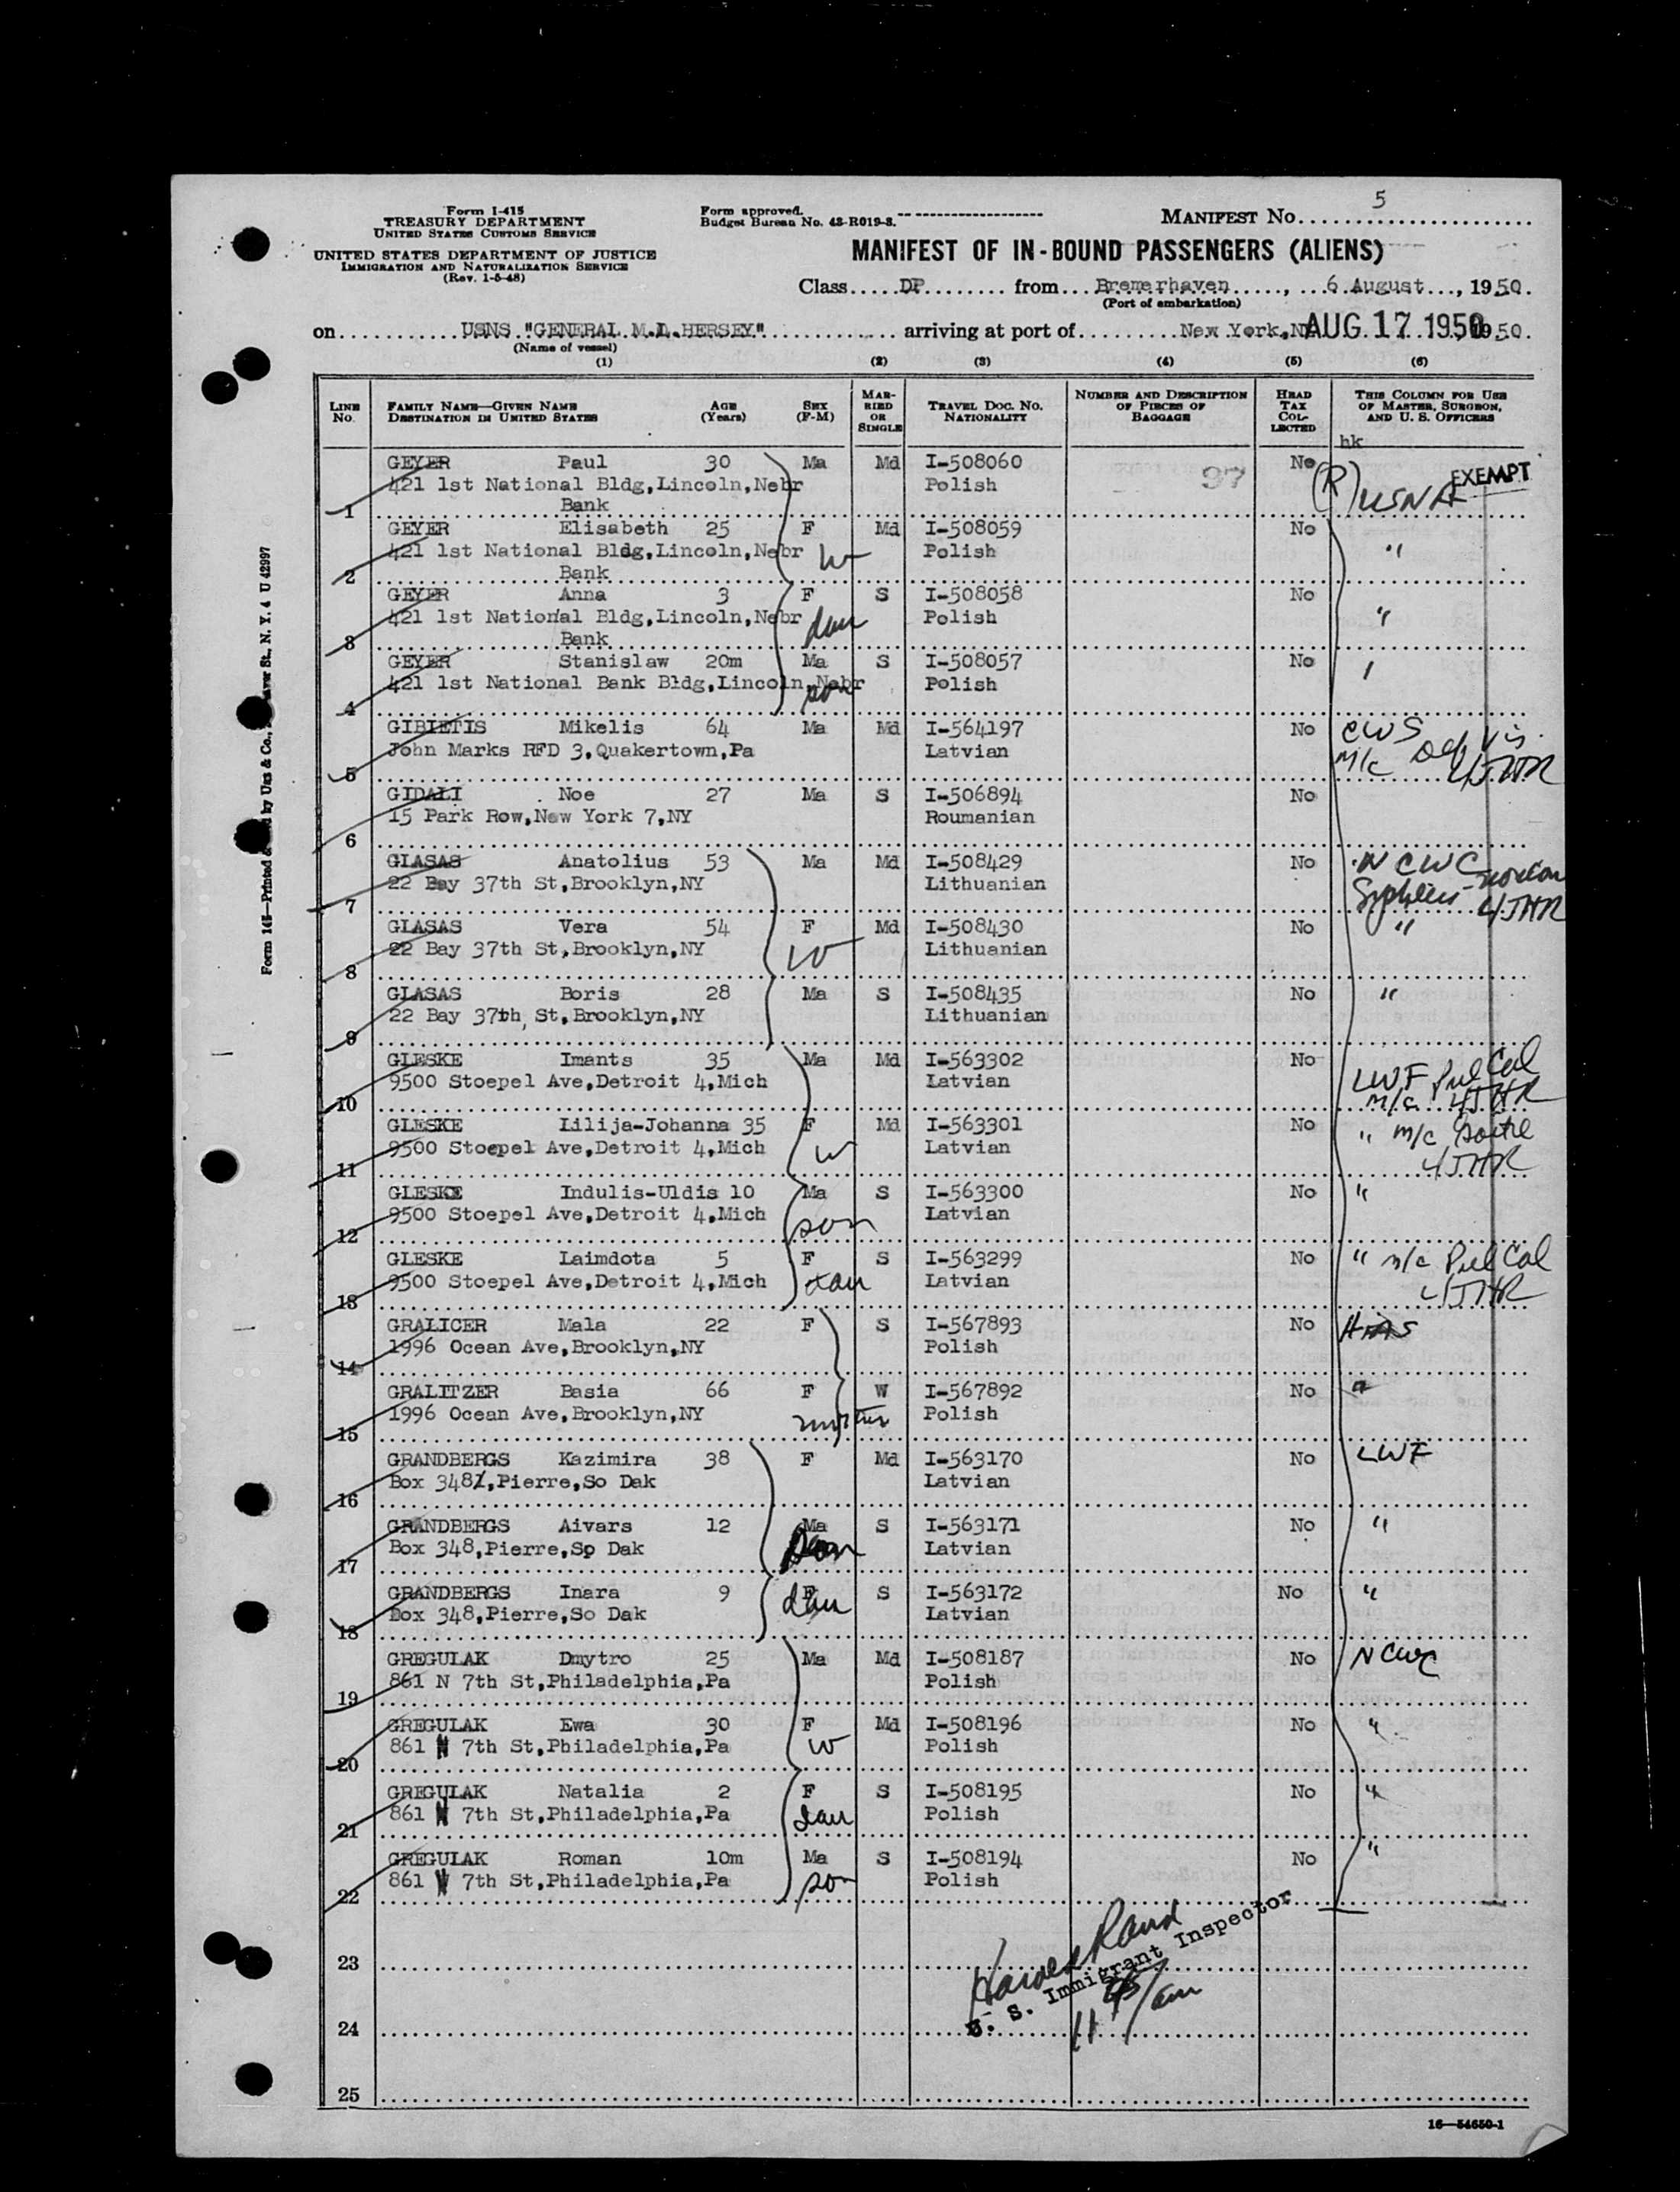 Form I-415
TREASURY DEPARTMENT
UNITED STATES CUSTOMS SERVICE
UNITED STATES DEPARTMENT OF JUSTICE
IMMIGRATION AND NATURALIZATION SERVICE
(Rev. 1-5-48)
Form approved.
Budget Bureau No. 43-R019-3.
MANIFEST No. 5
MANIFEST OF IN-BOUND PASSENGERS (ALIENS)
Class DP from Bremerhaven, 6 August, 1950.
(Port of embarkation)
on USNS "GENERAL M.L.HERSEY" arriving at port of New York, AUG 17 1950 50.
(Name of vessel)
(1) (2) (3) (4) (5) (6)
LINE No. FAMILY NAME—GIVEN NAME DESTINATION IN UNITED STATES AGE (Years) SEX (F-M) MARRIED OR SINGLE TRAVEL DOC. NO. NATIONALITY NUMBER AND DESCRIPTION OF PIECES OF BAGGAGE HEAD TAX COLLECTED THIS COLUMN FOR USE OF MASTER, SURGEON, AND U. S. OFFICERS
hk
GEYER Paul 30 Ma Md I-508060 97 No (R) USNA EXEMPT
421 1st National Bldg,Lincoln,Nebr Polish
1 Bank
GEYER Elisabeth 25 F Md I-508059 No "
421 1st National Bldg,Lincoln,Nebr W Polish
2 Bank
GEYER Anna 3 F S I-508058 No "
421 1st National Bldg,Lincoln,Nebr dau Polish
3 Bank
GEYER Stanislaw 20m Ma S I-508057 No
421 1st National Bank Bldg,Lincoln,Nebr son Polish
4
GIBIETIS Mikelis 64 Ma Md I-564197 No CWS
John Marks RFD 3,Quakertown,Pa Latvian m/c Def Vis
5 4/JHR
GIDALI Noe 27 Ma S I-506894 No
15 Park Row,New York 7,NY Roumanian
6
GLASAS Anatolius 53 Ma Md I-508429 No NCWC
22 Bay 37th St,Brooklyn,NY Lithuanian Syphilis
7 4/JHR
GLASAS Vera 54 F Md I-508430 No "
22 Bay 37th St,Brooklyn,NY W Lithuanian
8
GLASAS Boris 28 Ma S I-508435 No "
22 Bay 37th St,Brooklyn,NY Lithuanian
9
GLESKE Imants 35 Ma Md I-563302 No
9500 Stoepel Ave,Detroit 4,Mich Latvian LWF Pul Cal
10 m/c 4JHR
GLESKE Lilija-Johanna 35 F Md I-563301 No " m/c
9500 Stoepel Ave,Detroit 4,Mich W Latvian
11 4JHR
GLESKE Indulis-Uldis 10 Ma S I-563300 No "
9500 Stoepel Ave,Detroit 4,Mich son Latvian
12
GLESKE Laimdota 5 F S I-563299 No " m/c Pul Cal
9500 Stoepel Ave,Detroit 4,Mich dau Latvian
13 4JHR
GRALICER Mala 22 F S I-567893 No HIAS
1996 Ocean Ave,Brooklyn,NY Polish
14
GRALITZER Basia 66 F W I-567892 No "
1996 Ocean Ave,Brooklyn,NY mother Polish
15
GRANDBERGS Kazimira 38 F Md I-563170 No LWF
Box 348,Pierre,So Dak Latvian
16
GRANDBERGS Aivars 12 Ma S I-563171 No "
Box 348,Pierre,So Dak son Latvian
17
GRANDBERGS Inara 9 F S I-563172 No "
Box 348,Pierre,So Dak dau Latvian
18
GREGULAK Dmytro 25 Ma Md I-508187 No NCWC
861 N 7th St,Philadelphia,Pa Polish
19
GREGULAK Ewa 30 F Md I-508196 No "
861 N 7th St,Philadelphia,Pa W Polish
20
GREGULAK Natalia 2 F S I-508195 No "
861 N 7th St,Philadelphia,Pa dau Polish
21
GREGULAK Roman 10m Ma S I-508194 No "
861 N 7th St,Philadelphia,Pa son Polish
22
23
Harold Rand
U. S. Immigrant Inspector
24
11 45/am
25
16—54650-1